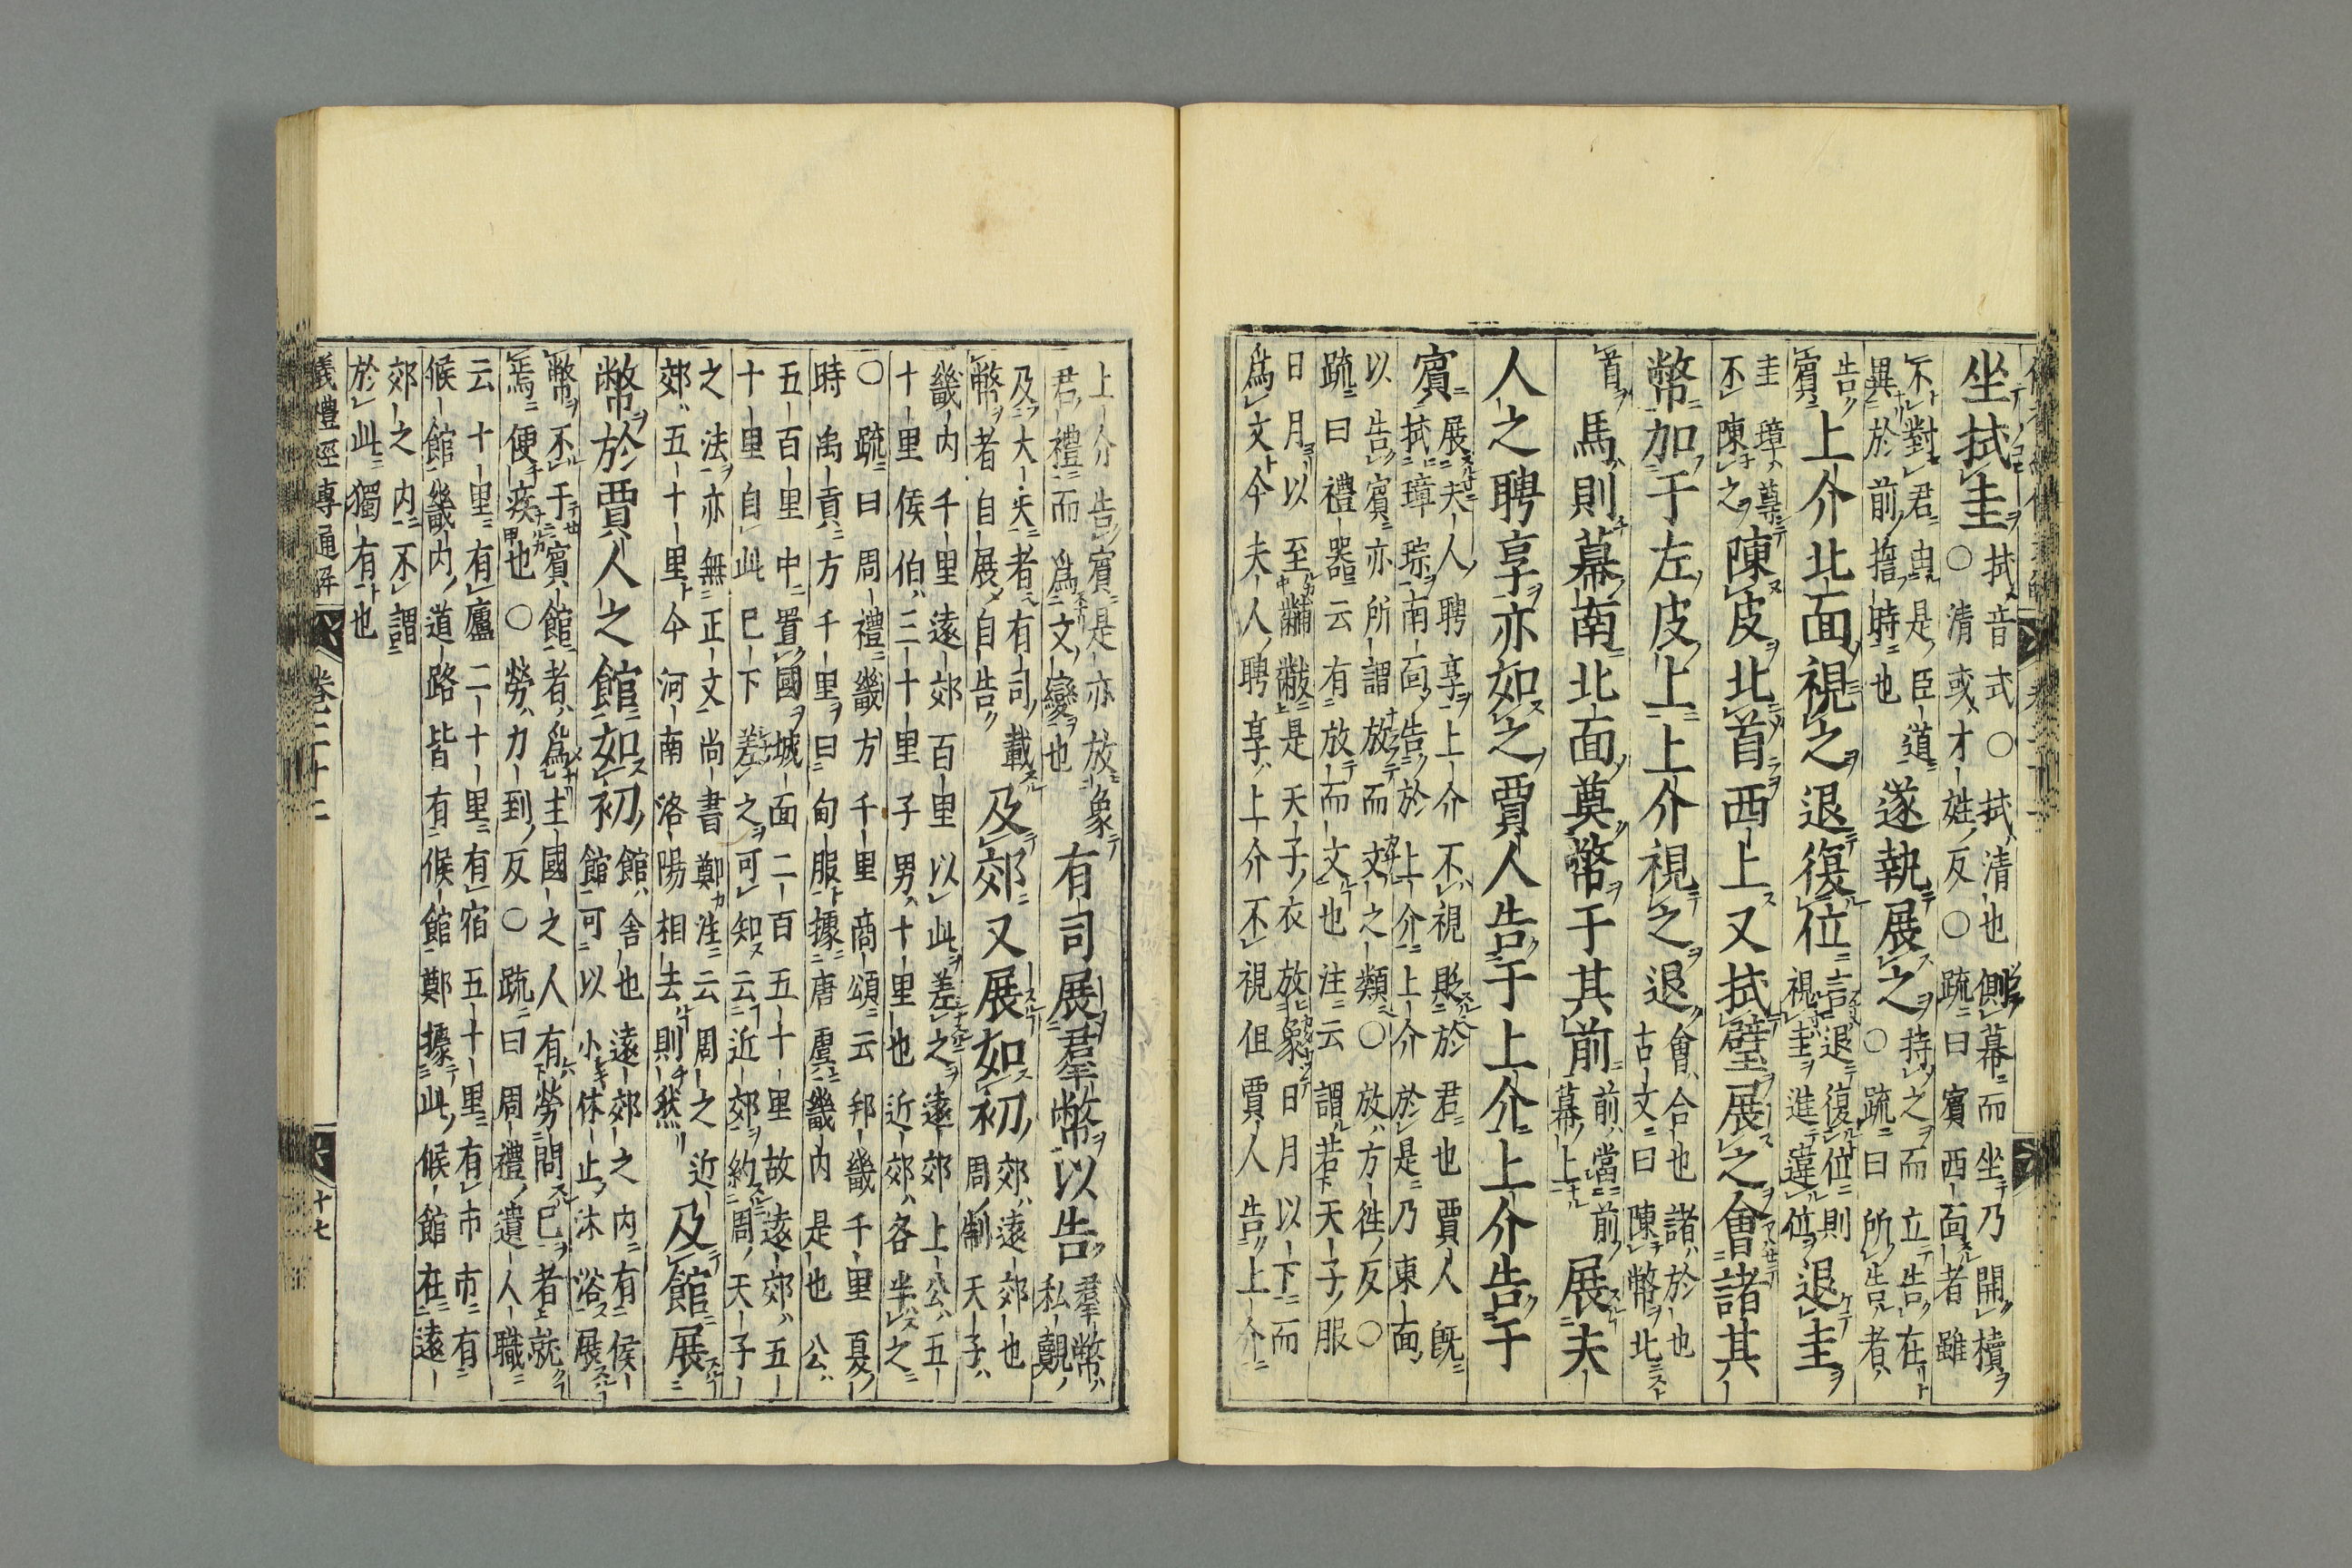 坐拭圭
拭音式○拭清也側幕而坐乃開櫝
○清或才姓反○疏曰賓西面者雖
不對君由是臣道
異於前揜時也
遂執展之
持之而立告在
○疏曰所告者
告
賓
上介北面視之退復位
言退復位則
視圭進違位
退圭
圭璋尊
不陳之
陳皮北首西上又拭璧展之會諸其
幣加于左皮上上介視之退
會合也諸於也
古文曰陳幣北
首
馬則幕南北面奠幣于其前
前當前
幕上
展夫
人之聘享亦如之賈人告于上介上介告于
賓
展夫人聘享上介不視貶於君也賈人既
拭璋琮南面告於上介上介於是乃東面
以告賓亦所謂放而文之類○放方徃反○
疏曰禮器云有放而文也注云謂若天子服
日月以至黼黻是天子衣放象日月以下而
爲文今夫人聘享上介不視但賈人告上介
上介告賓是亦放象
君禮而爲文變也
有司展羣幣以告
羣幣
私覿
及大夫者有司載
幣者自展自告
及郊又展如初
郊遠郊也
周制天子
畿内千里遠郊百里以此差之遠郊上公五
十里侯伯三十里子男十里也近郊各半之
○疏曰周禮畿方千里商頌云邦畿千里夏
時禹貢方千里曰甸服據唐虞畿内是也公
五百里中置國城面二百五十里故遠郊五
十里自此已下差之可知云近郊約周天子
之法亦無正文尚書鄭注云周之近
郊五十里今河南洛陽相去則然
及館展
幣於賈人之館如初
館舍也遠郊之内有候
館可以小休止沐浴展
幣不于賓館者爲主國之人有勞問已者就
焉便疾也○勞力到反○疏曰周禮遺人職
云十里有廬二十里有宿五十里有市市有
候館畿内道路皆有候館鄭據此候館在遠
郊之内不謂
於此獨有也
儀禮經傳通解 卷二十二 十七